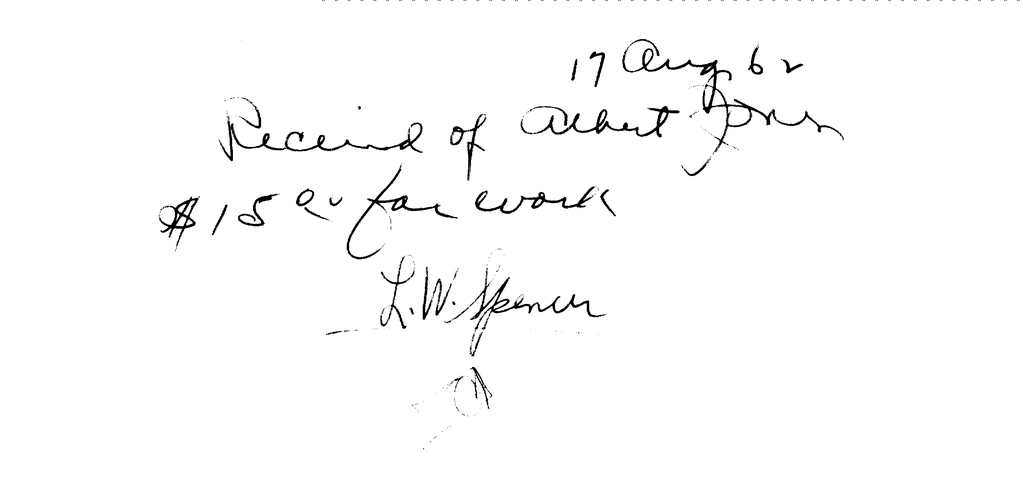 17 Aug 62
Received of Albert Jones
$15 00 for work
L.W. Spencer